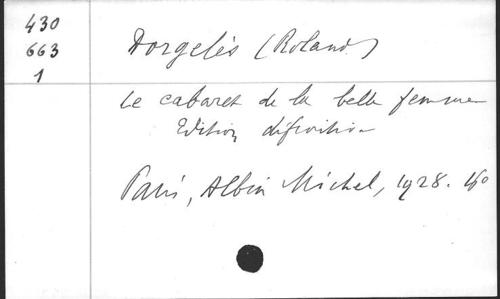 430
663
1
Dorgelès (Roland)
Le cabaret de la belle femme
Edition définitive
Paris, Albin Michel, 1928.